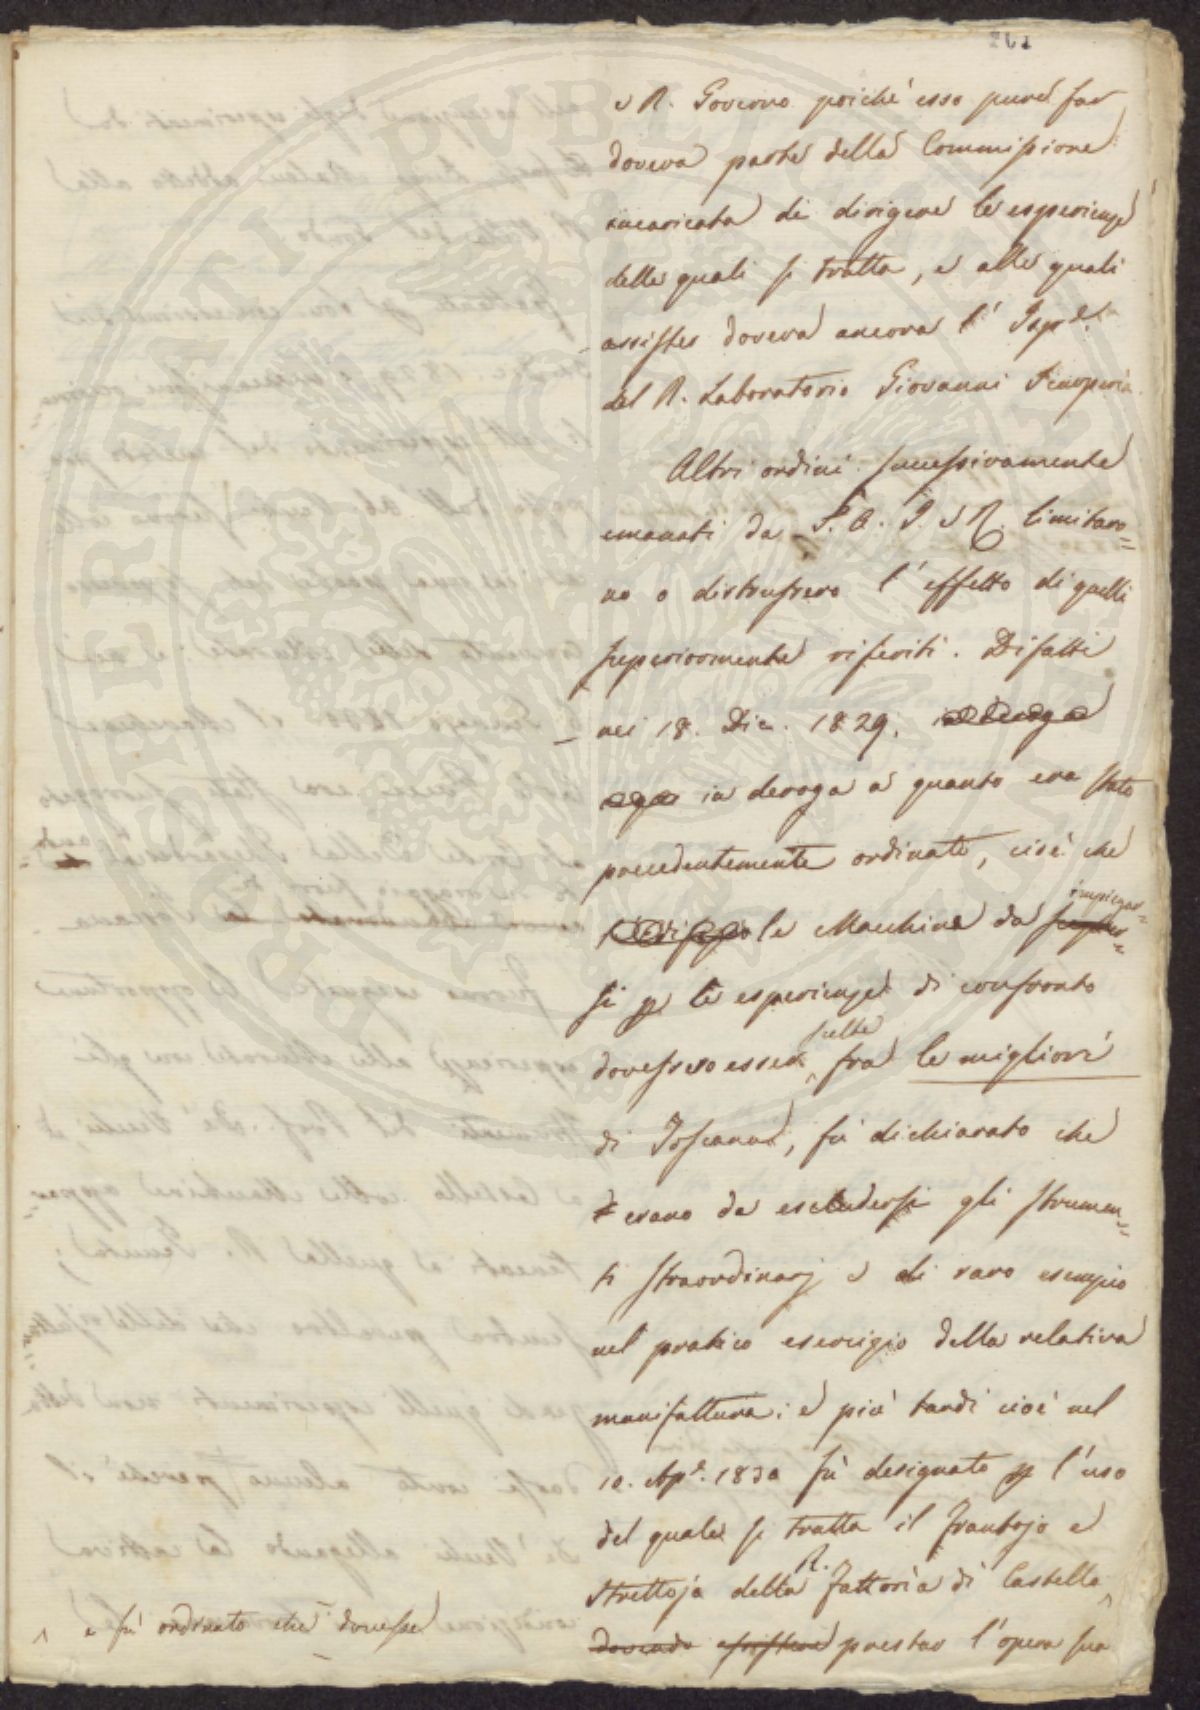 e R. Governo poiché esso pure far
doveva parte della Commissione
incaricata di dirigere le esperienze
delle quali si tratta, e alle quali
assister doveva ancora l'Isp.
del R. Laboratorio Giovanni
Altri ordini successivamente
emanati da S. A. I. e R. limitaro=
no o distrussero l'effetto di quelli
superiormente riferiti. Difatti
nei 18. Dic. 1829.
in deroga a quanto era stato
precedentemente ordinato, cioè che
le Macchine da impiegar=
si per le esperienze di confronto
dovessero esser scelte fra le migliori
di Toscana, fù dichiarato che
erano da escludersi gli strumen=
ti straordinarj e di raro esempio
nel pratico esercizio della relativa
manifattura; e più tardi cioè nel
10. Ap.e 1830 fù designato per l'uso
del quale si tratta il frantojo e
Strettoja della R. Fattoria di Castello
^ e fù ordinato che dovesse
dovendo assistere prestar l'opera sua